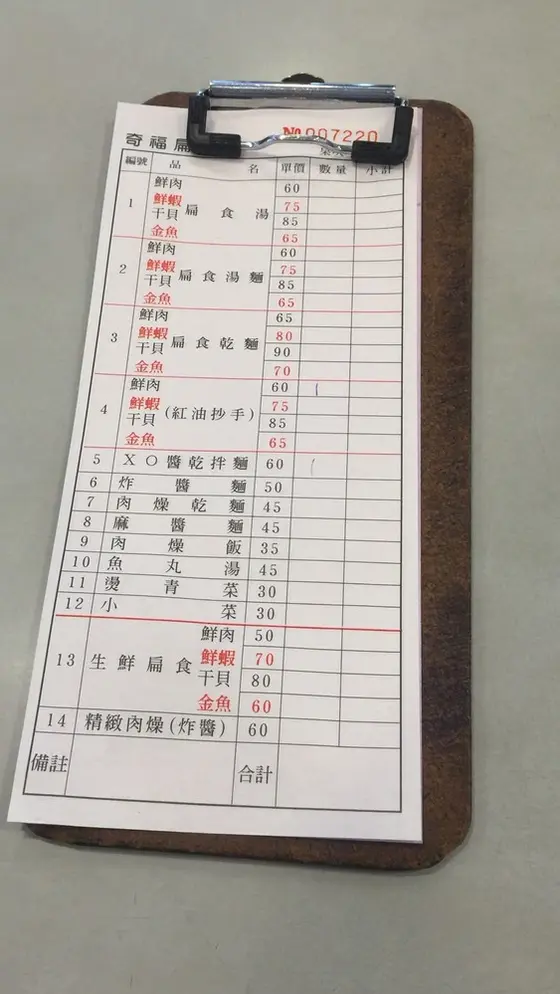 № 007220
奇福扁
編號 品名 單價 數量 小計
1 扁食湯
鮮肉 60
鮮蝦 75
干貝 85
金魚 65
2 扁食湯麵
鮮肉 60
鮮蝦 75
干貝 85
金魚 65
3 扁食乾麵
鮮肉 65
鮮蝦 80
干貝 90
金魚 70
4 (紅油抄手)
鮮肉 60
鮮蝦 75
干貝 85
金魚 65
5 XO醬乾拌麵 60
6 炸醬麵 50
7 肉燥乾麵 45
8 麻醬麵 45
9 肉燥飯 35
10 魚丸湯 45
11 燙青菜 30
12 小菜 30
13 生鮮扁食
鮮肉 50
鮮蝦 70
干貝 80
金魚 60
14 精緻肉燥(炸醬) 60
備註 合計